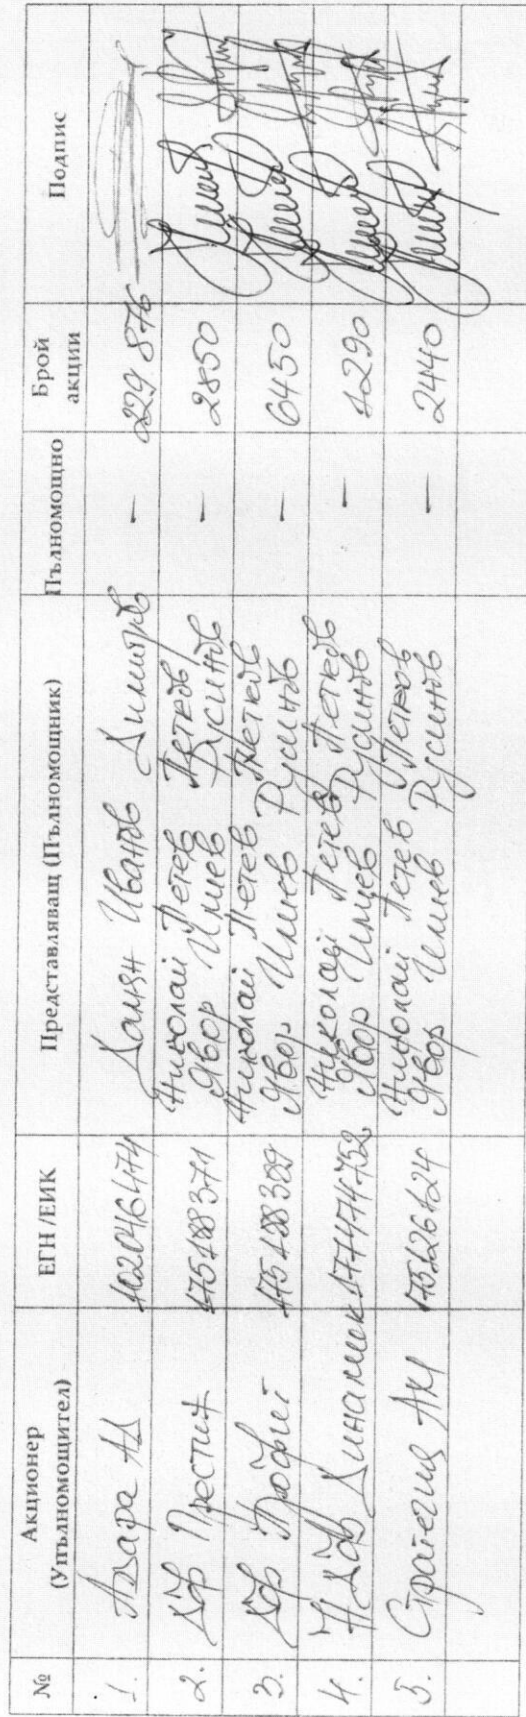 № Акционер (Упълномощител) ЕГН /ЕИК Представляващ (Пълномощник) Пълномощно Брой акции Подпис
1. АД Дамян Иванов Димитров - 229 876
2. ДФ Престиж 175188371 Николай Петев Петков - 2850
Явор Илиев Русинов
3. ДФ Профит 175188389 Николай Петев Петков - 6450
Явор Илиев Русинов
4. ДФ Динамик 177474752 Николай Петев Петков - 1290
Явор Илиев Русинов
5. Стратегия 175126124 Николай Петев Петков - 2440
Явор Илиев Русинов